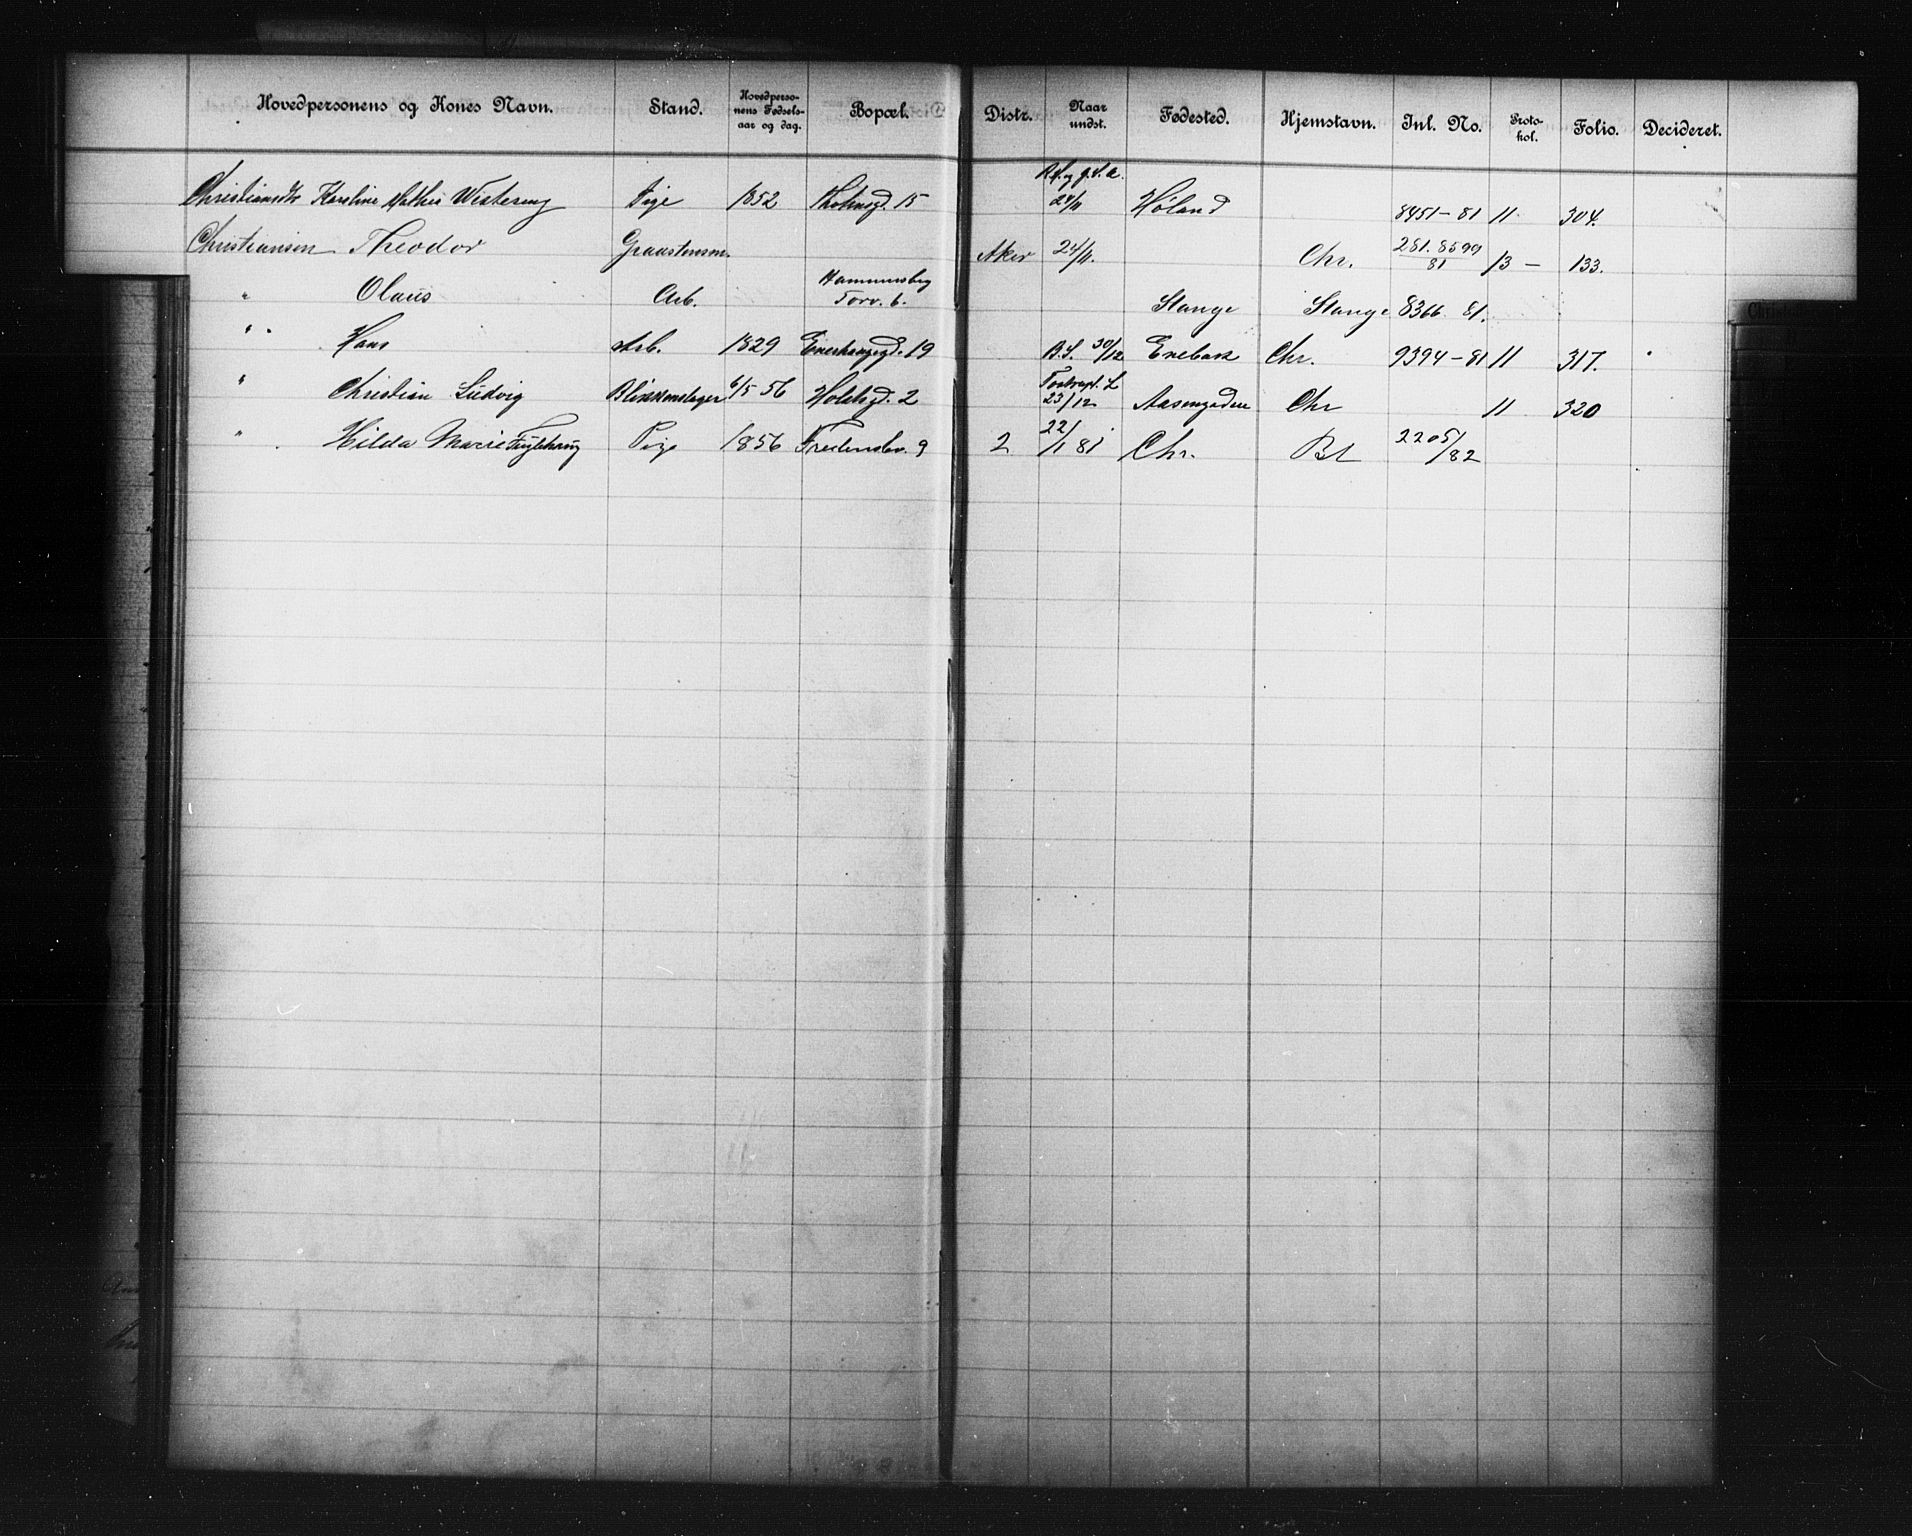 Hovedpersonens og Kones Navn. Stand. Hovedperso-nens Fødsels-aar og dag. Bopæl. Distr. Naar undst. Fødested. Hjemstavn. Inl. No. Proto-kol. Folio. Decideret.
Christiansdtr Karoline Mathea Pige 1852 Holmsgd. 15 24/11 Høland 8451-81 11 304.
Christiansen Theodor Graastensm. Aker 24/11. Chr. 281.8599/81 13 - 133.
" Olaus Arb. Hammersborg Torv. 6. Stange Stange 8366 81.
" Hans Arb. 1829 Enerhauggd. 19 B.S. 30/12 Enebak Chr. 9394-81 11 317.
" Christian Ludvig Blikkenslager 6/5 56 Holstsgd. 2 23/12 Aasengaden Chr 11 320
" Hilda Marie Pige 1856 Fredensbv. 9 2 22/1 81 Chr. Bt 2205/82